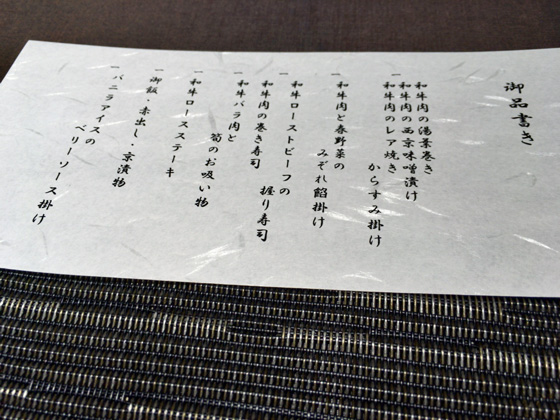 御品書き
一 和牛肉の湯葉巻き
和牛肉の西京味噌漬け
和牛肉のレア焼き
からすみ掛け
一 和牛肉と春野菜の
みぞれ餡掛け
一 和牛ローストビーフの
握り寿司
和牛肉の巻き寿司
一 和牛バラ肉と
筍のお吸い物
一 和牛ロースステーキ
一 御飯・赤出し・京漬物
一 バニラアイスの
ベリーソース掛け